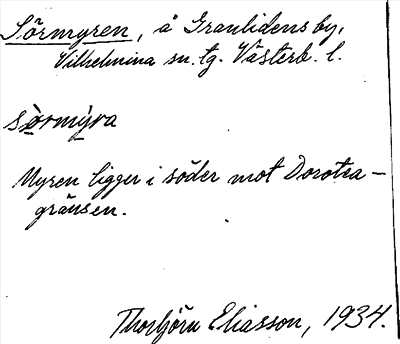 Sörmyren, å Granlidens by,
Vilhelmina sn. tg. Västerb. l.
sörmýra
Myren ligger i söder mot Dorotea-
gränsen.
Thorbjörn Eliasson, 1934.